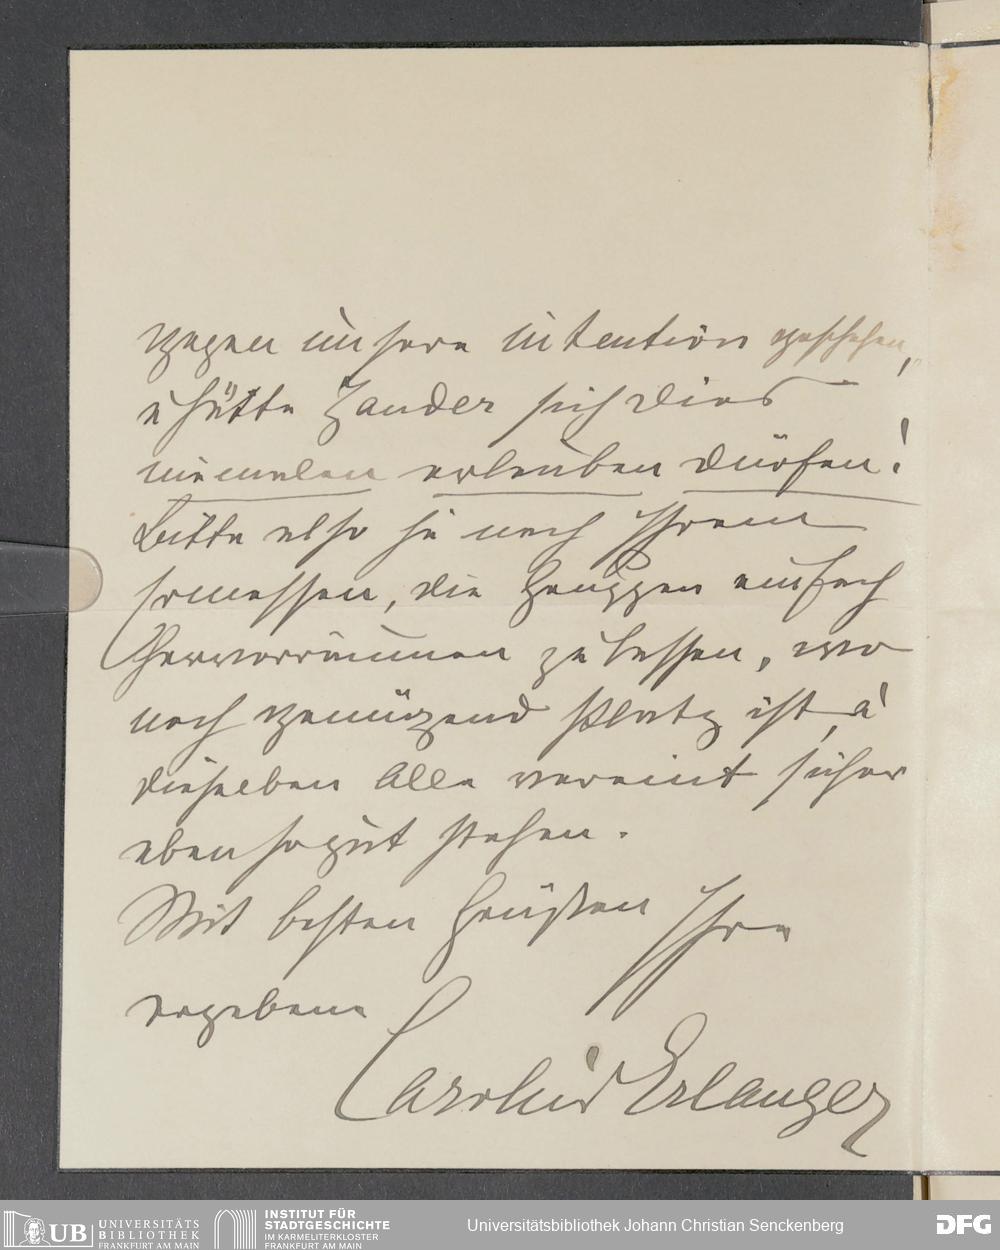 gegen unsere intention geschehen,
u hätte Zander sich dies
niemalen erlauben dürfen!
Bitte also je nach Ihrem
Ermessen, die Gruppen einfach
herumräumen zu lassen, wo
noch genügend Platz ist, u
dieselben Alle vereint sicher
ebensogut stehen.
Mit besten Grüßen Ihre
ergebene
Caroline Erlanger
UB UNIVERSITÄTS
BIBLIOTHEK
FRANKFURT AM MAIN
INSTITUT FÜR
STADTGESCHICHTE
IM KARMELITERKLOSTER
FRANKFURT AM MAIN
Universitätsbibliothek Johann Christian Senckenberg
DFG